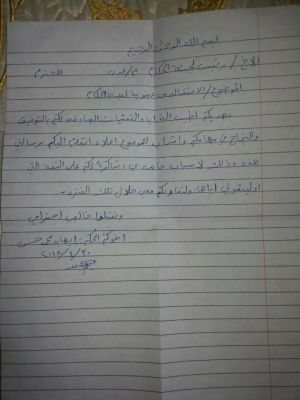 بسم الله الرحمن الرحيم
الاخ / رئيس لجنة الحكام م/عدن المحترم
الموضوع / الاستقالة من عضوية لجنة الحكام
نهديكم اطيب التحايا والتمنيات الصادقة لكم بالتوفيق
والنجاح في مهامكم واشارة للموضوع اعلاه اتقدم اليكم برسالتي
هذه وذلك لاسباب خاصه بي، شاكرا لكم على الثقة التي
اوليتموني اياها وتعاونكم معي خلال تلك الفتره.
وتقبلوا خالص احترامي
اخوكم الحكم / ايهاب محمد حسن
٢٠١٨/٤/٢٠